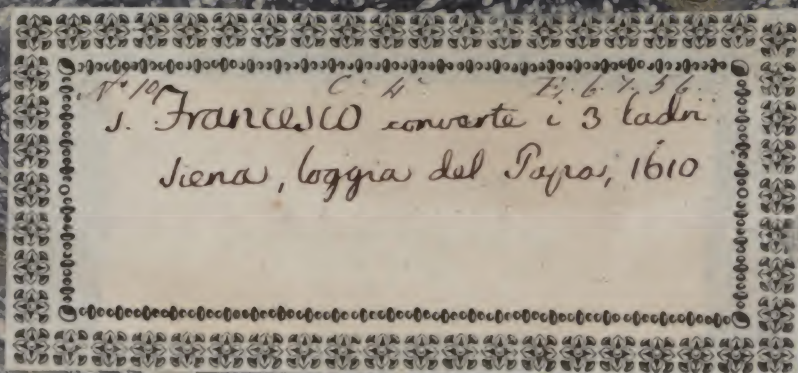 N.° 10 C. 4.
S. Francesco converte i 3 ladri
Siena, loggia del Papa, 1610